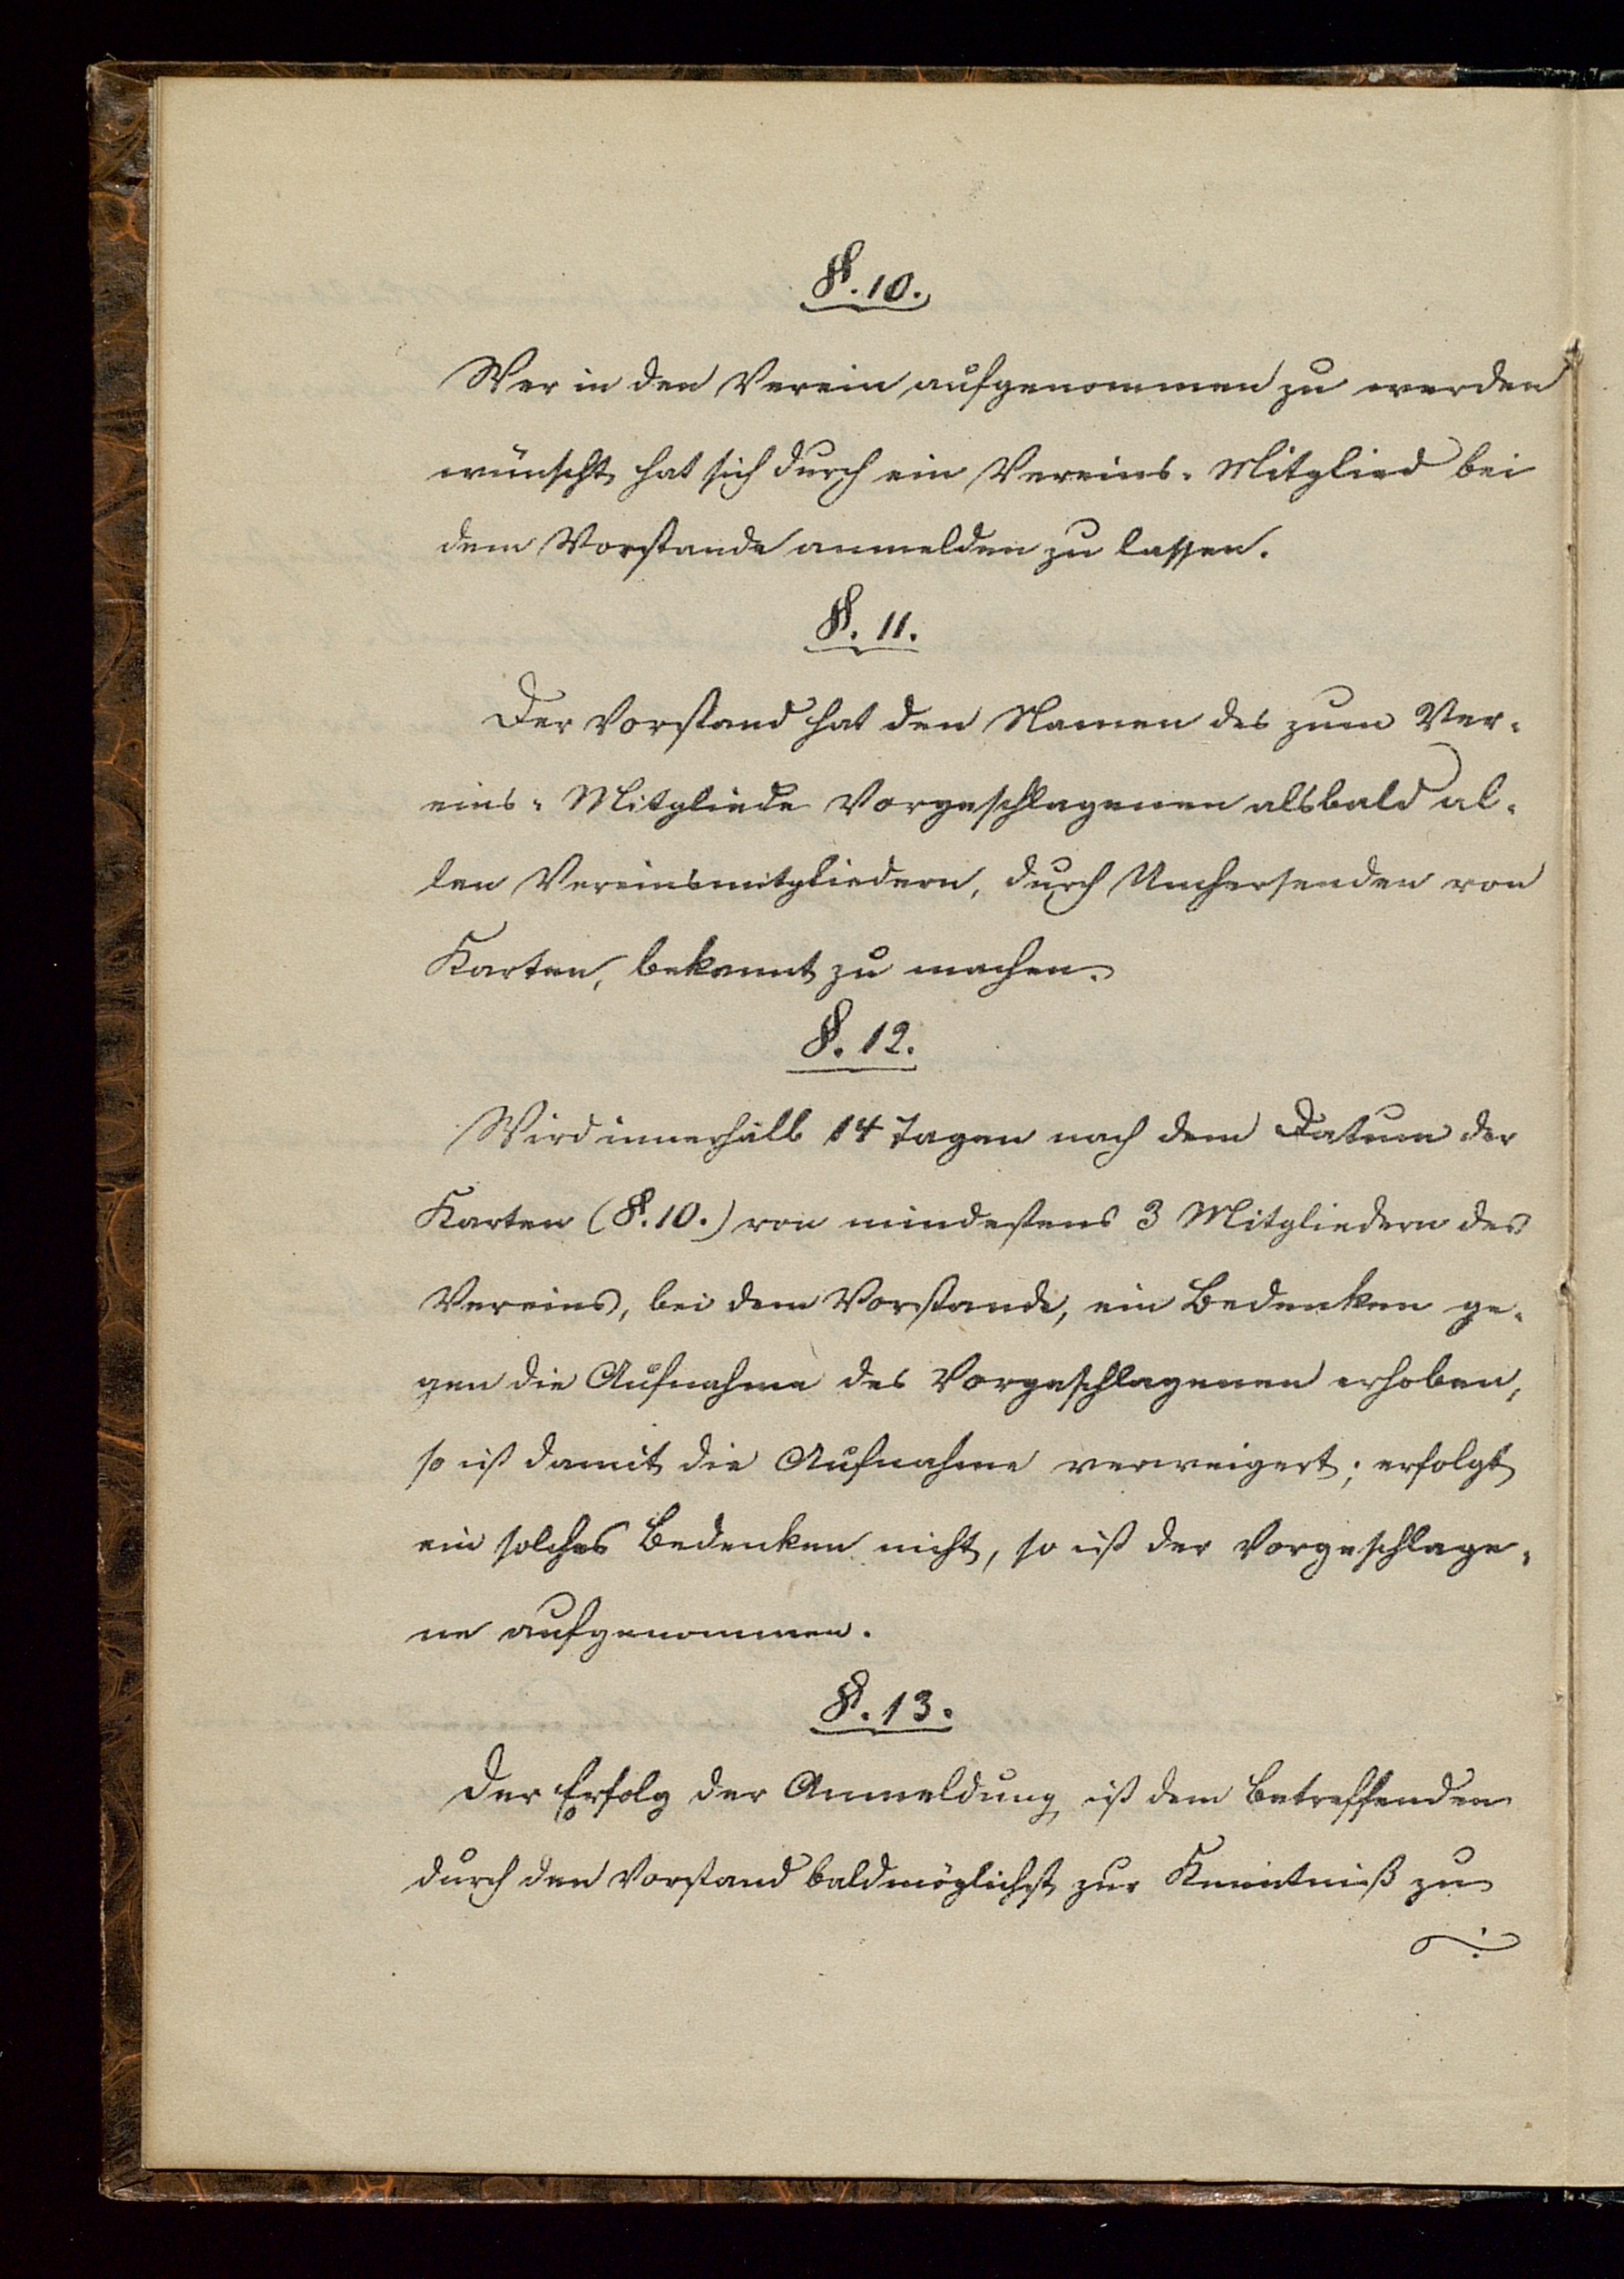 §. 10.
Wer in den Verein aufgenommen zu werden
wünscht, hat sich durch ein Vereins-Mitglied bei
dem Vorstande anmelden zu lassen.
§. 11.
Der Vorstand hat den Namen des zum Ver-
eins-Mitgliede Vorgeschlagenen alsbald al-
len Vereinsmitgliedern, durch Umhersenden von
Karten, bekannt zu machen.
§. 12.
Wird innerhalb 14 Tagen nach dem Datum der
Karten (§. 10.) von mindestens 3 Mitgliedern des
Vereins, bei dem Vorstande, ein Bedenken ge-
gen die Aufnahme des Vorgeschlagenen erhoben,
so ist damit die Aufnahme verweigert; erfolgt
ein solches Bedenken nicht, so ist der Vorgeschlage-
ne aufgenommen.
§. 13.
Der Erfolg der Anmeldung ist dem Betreffenden
durch den Vorstand baldmöglichst zur Kenntniß zu